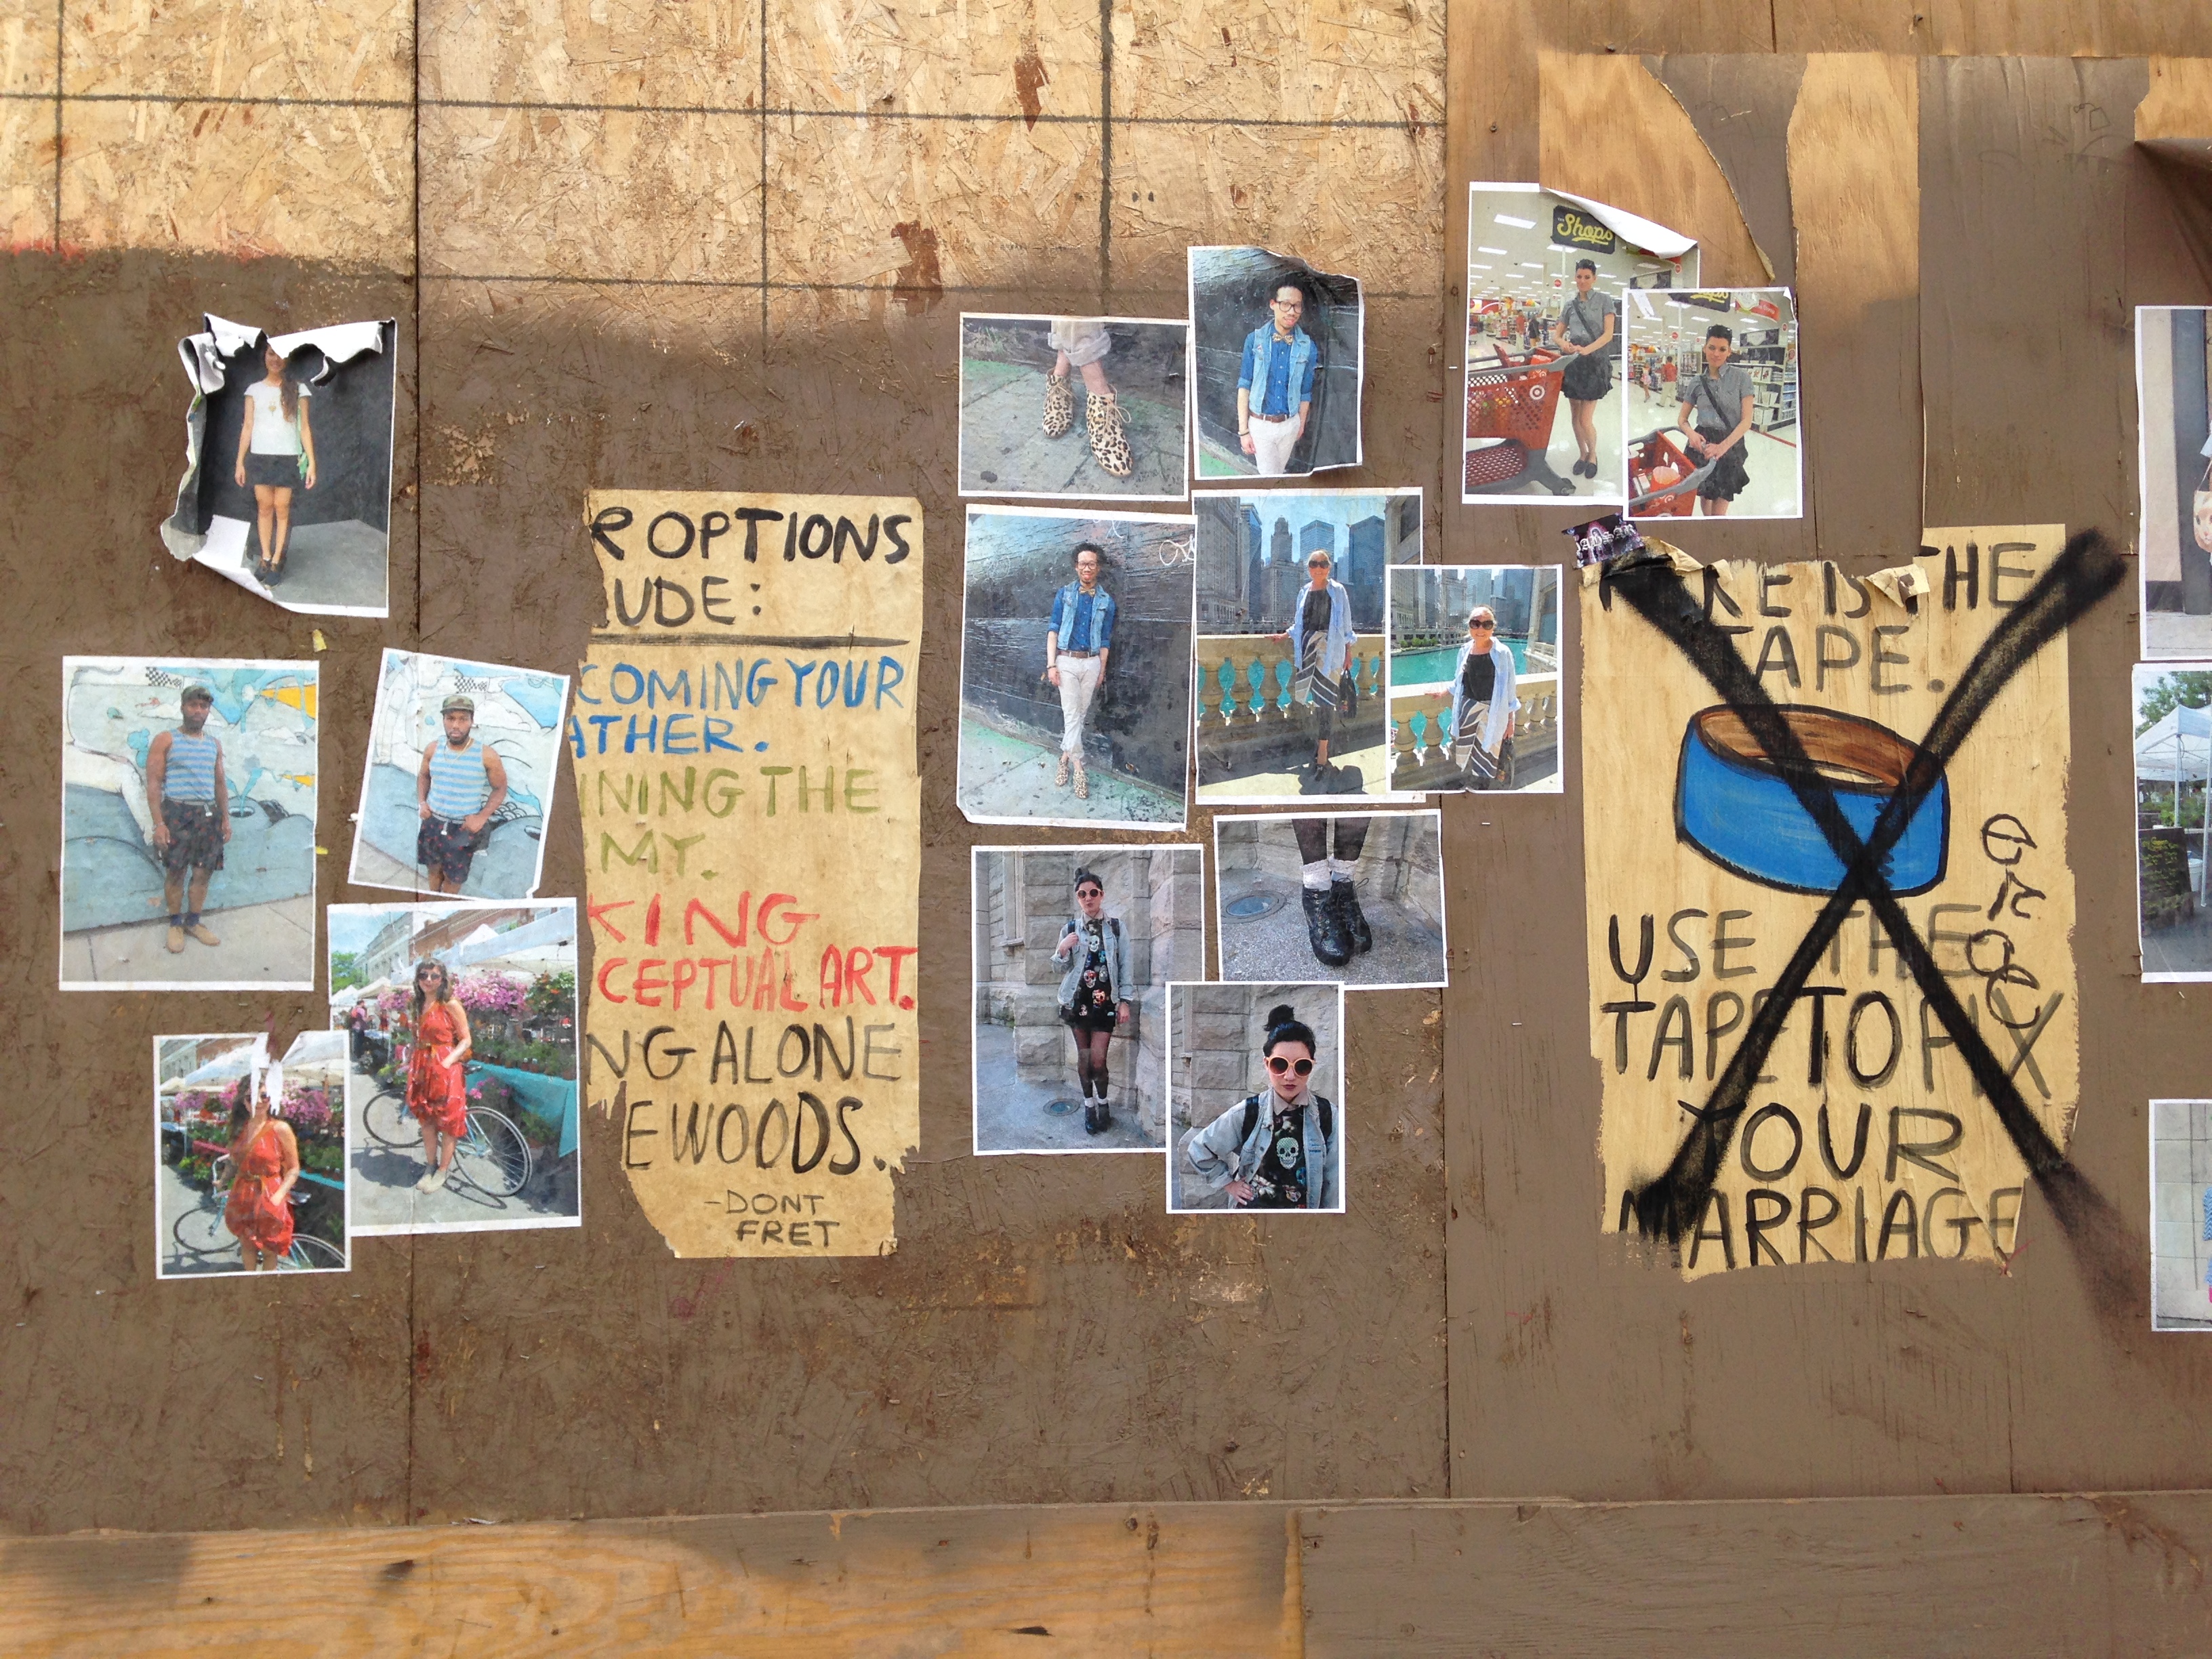 R OPTIONS
UDE:
COMING YOUR
ATHER.
NING THE
MY.
KING
CEPTUAL ART.
NG ALONE
E WOODS.
-DONT
FRET
Shops
RE IS THE
TAPE.
USE THE
TAPE TO FIX
YOUR
MARRIAGE